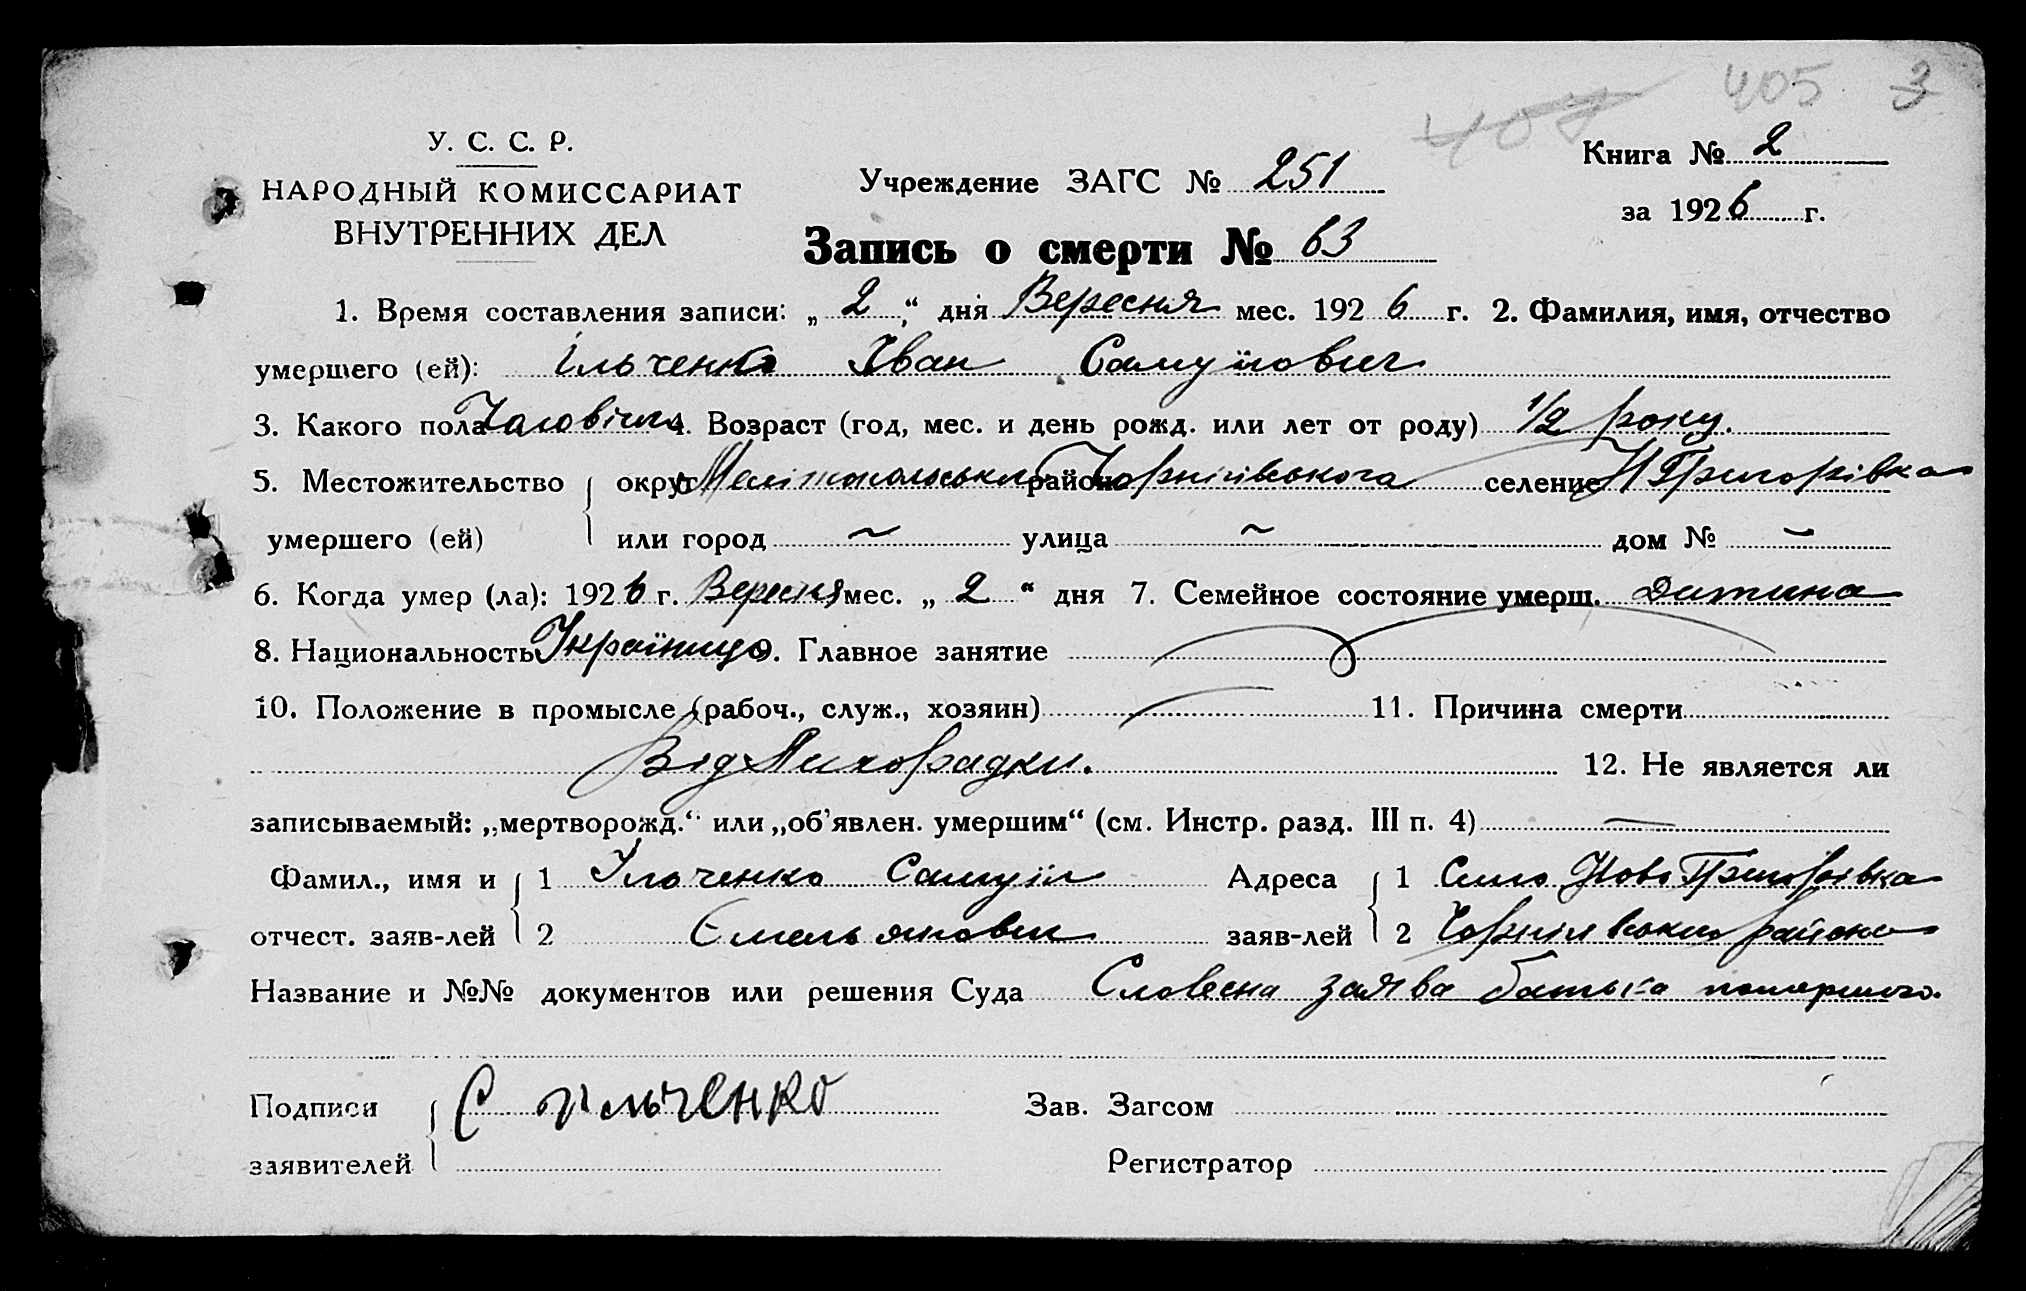 405 3
407
У. С. С. Р.
НАРОДНЫЙ КОМИССАРИАТ
ВНУТРЕННИХ ДЕЛ
Учреждение ЗАГС № 251
Книга № 2
за 1926 г.
Запись о смерти № 63
1. Время составления записи: „ 2 “ дня Вересня мес. 1926 г. 2. Фамилия, имя, отчество
умершего (ей): Ільченко Іван Самуїлович
3. Какого пола Чаловіча 4. Возраст (год, мес. и день рожд. или лет от роду) 1/2 року.
5. Местожительство округ Мелітопольського район Чорнігівського селение Н Григорівка
умершего (ей) или город ~ улица ~ дом № ~
6. Когда умер (ла): 1926 г. Вересня мес. „ 2 “ дня 7. Семейное состояние умерш. Дитина
8. Национальность Українець 9. Главное занятие
10. Положение в промысле (рабоч., служ., хозяин) 11. Причина смерти
Від Лихорадки. 12. Не является ли
записываемый: „мертворожд.“ или „об’явлен. умершим“ (см. Инстр. разд. III п. 4) —
Фамил., имя и 1 Ільченко Самуїл Адреса 1 Село Ново Григорівка
отчест. заяв-лей 2 Омельянович заяв-лей 2 району
Название и №№ документов или решения Суда Словесна заява батька помершого.
Подписи С Ильченко Зав. Загсом
заявителей Регистратор